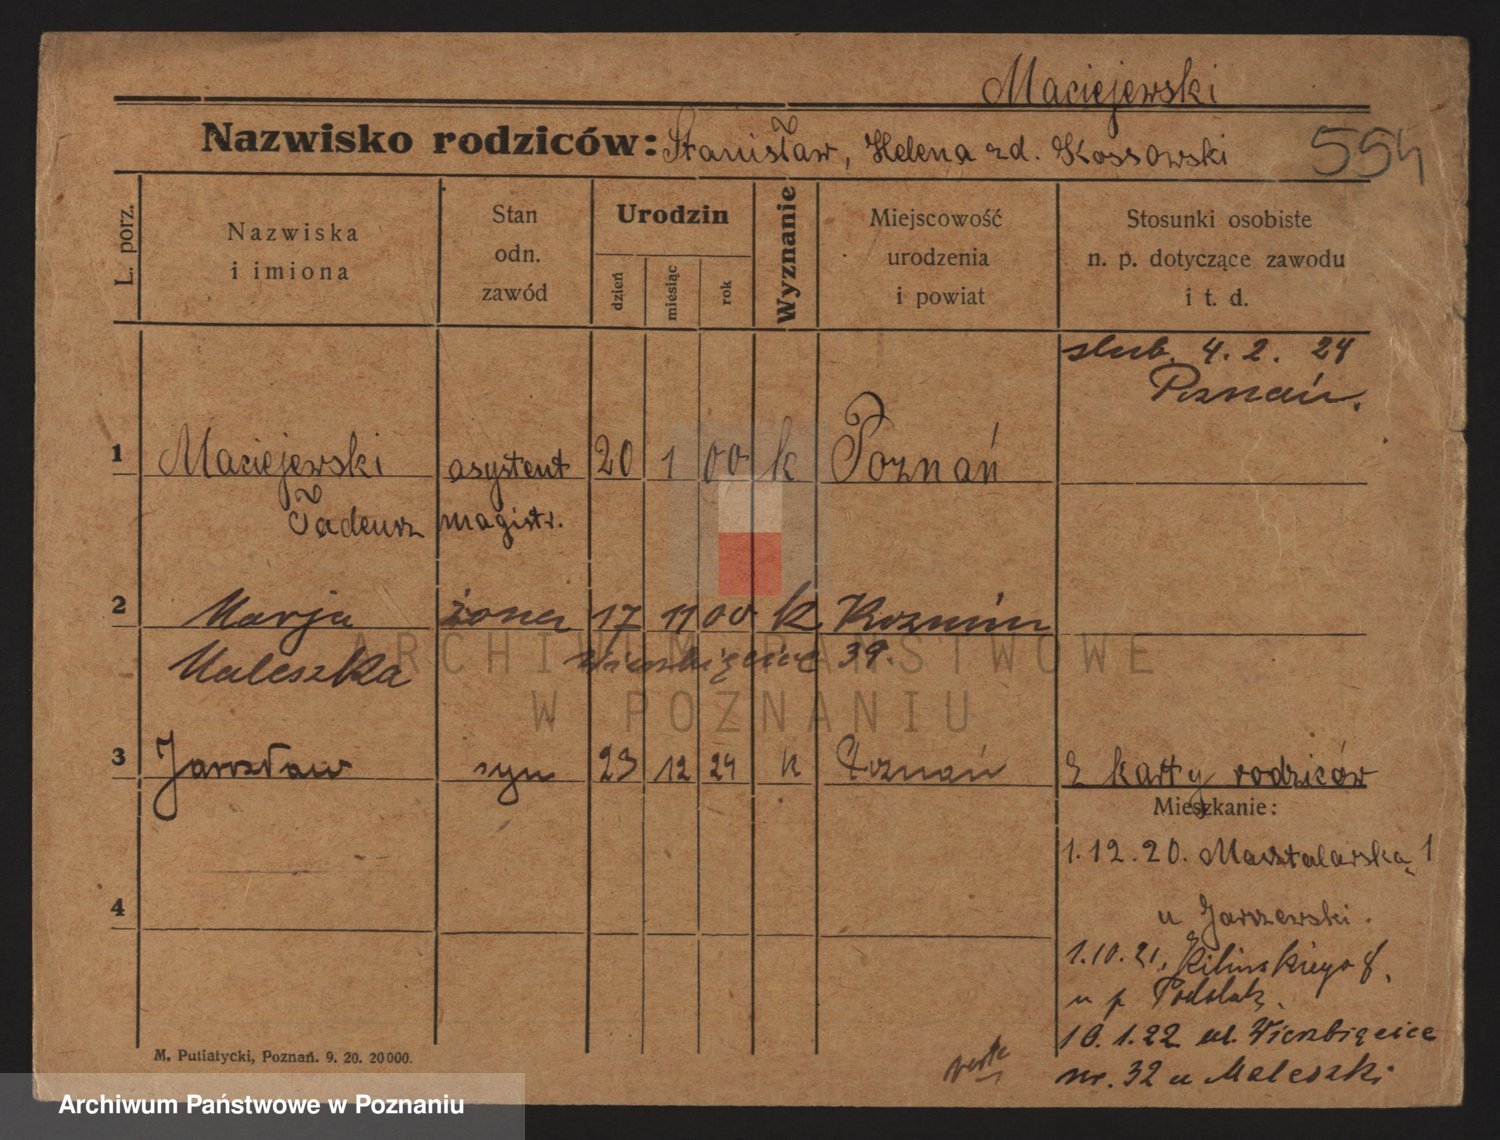 Maciejewski
Nazwisko rodziców: Stanisław, Helena zd. Kossowski
554
L. porz.
Nazwiska
i imiona
Stan
odn.
zawód
Urodzin
dzień
miesiąc
rok
Wyznanie
Miejscowość
urodzenia
i powiat
Stosunki osobiste
n. p. dotyczące zawodu
i t. d.
slub. 4. 2. 24
Poznań.
1 Maciejewski asystent 20 1 00 k Poznań
Tadeusz magistr.
2 Marja żona 17 11 00 k Koźmin
Maleszka Wierzbięcice 39.
3 Jarosław syn 23 12 24 k Poznań z karty rodziców
Mieszkanie:
1.12.20. Masztalarska 1
4
u Jarszewski.
1.10.21. Kilinskiego 8.
u p.
10.1.22 ul. Wierzbięcice
nr. 32 u Maleszki
verte
M. Putiatycki, Poznań. 9. 20. 20000.
ARCHIWUM PAŃSTWOWE
W POZNANIU
Archiwum Państwowe w Poznaniu